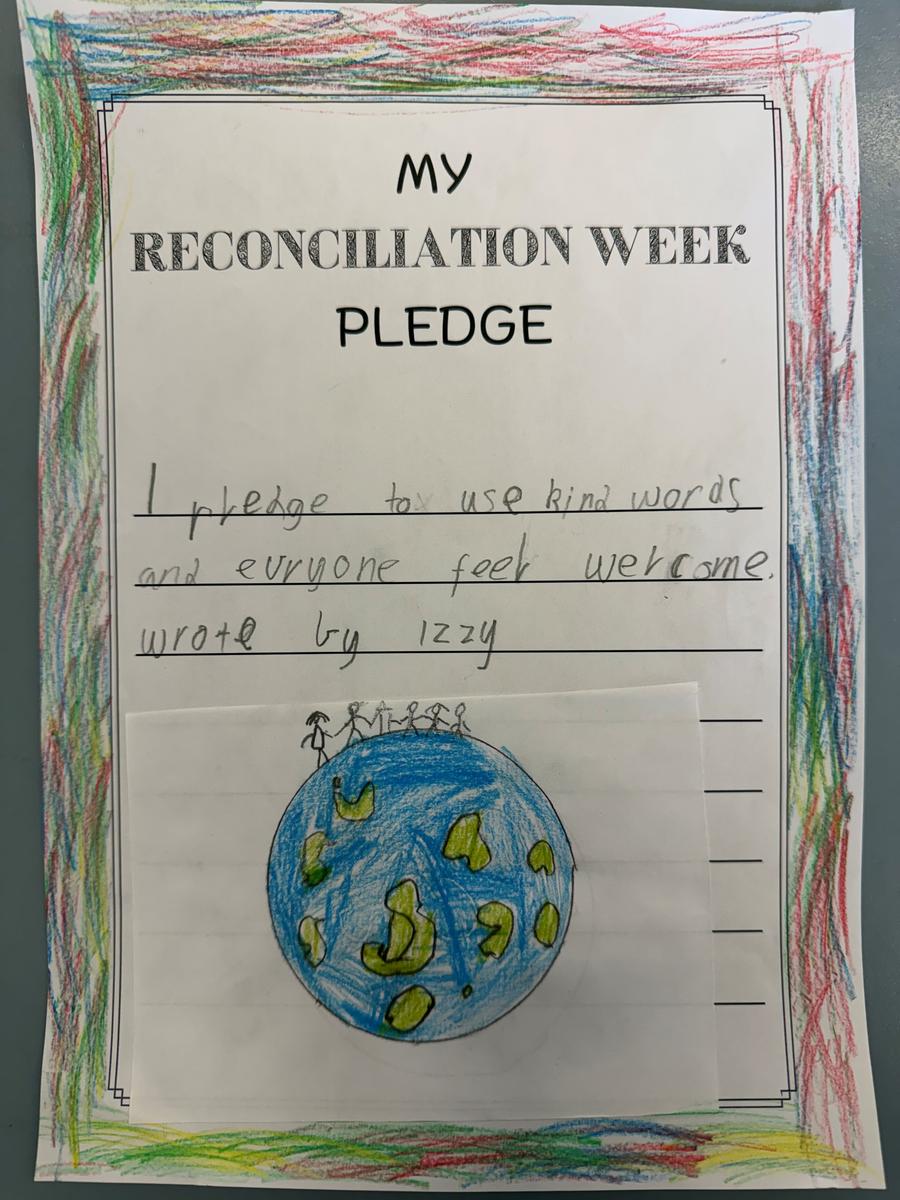 MY
RECONCILIATION WEEK
PLEDGE
I pledge to use kind words
and evryone feel welcome.
wrote by Izzy